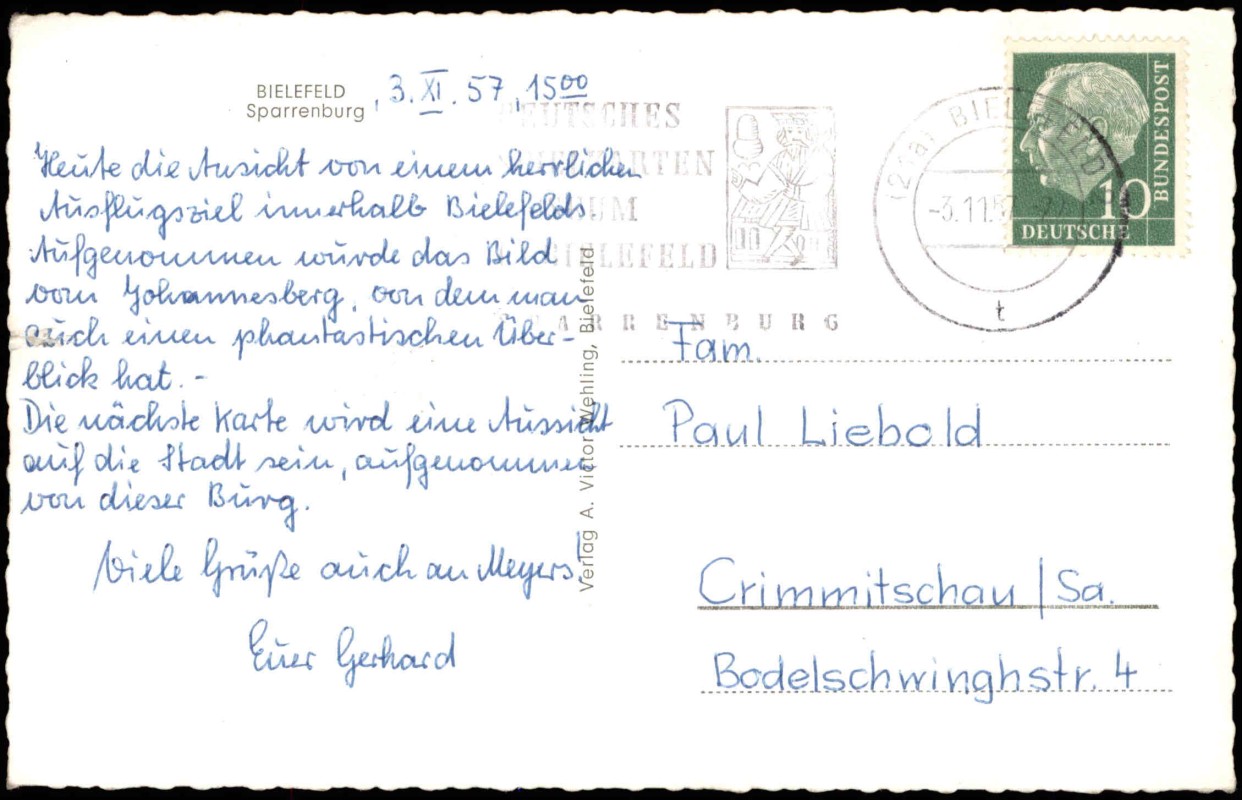 BIELEFELD
Sparrenburg
, 3. XI. 57, 15⁰⁰
Heute die Ansicht von einem herrlichen
Ausflugsziel innerhalb Bielefelds.
Aufgenommen wurde das Bild
vom Johannesberg, von dem man
auch einen phantastischen Über-
blick hat. -
Die nächste Karte wird eine Aussicht
auf die Stadt sein, aufgenommen
von dieser Burg.
Viele Grüße auch an Meyers!
Euer Gerhard
Verlag A. Victor Wehling, Bielefeld
DEUTSCHES
BIELEFELD
SPARRENBURG
(21a) BIELEFELD
-3.11.57
t
10
BUNDESPOST
DEUTSCHE
Fam.
Paul Liebold
Crimmitschau / Sa.
Bodelschwinghstr. 4